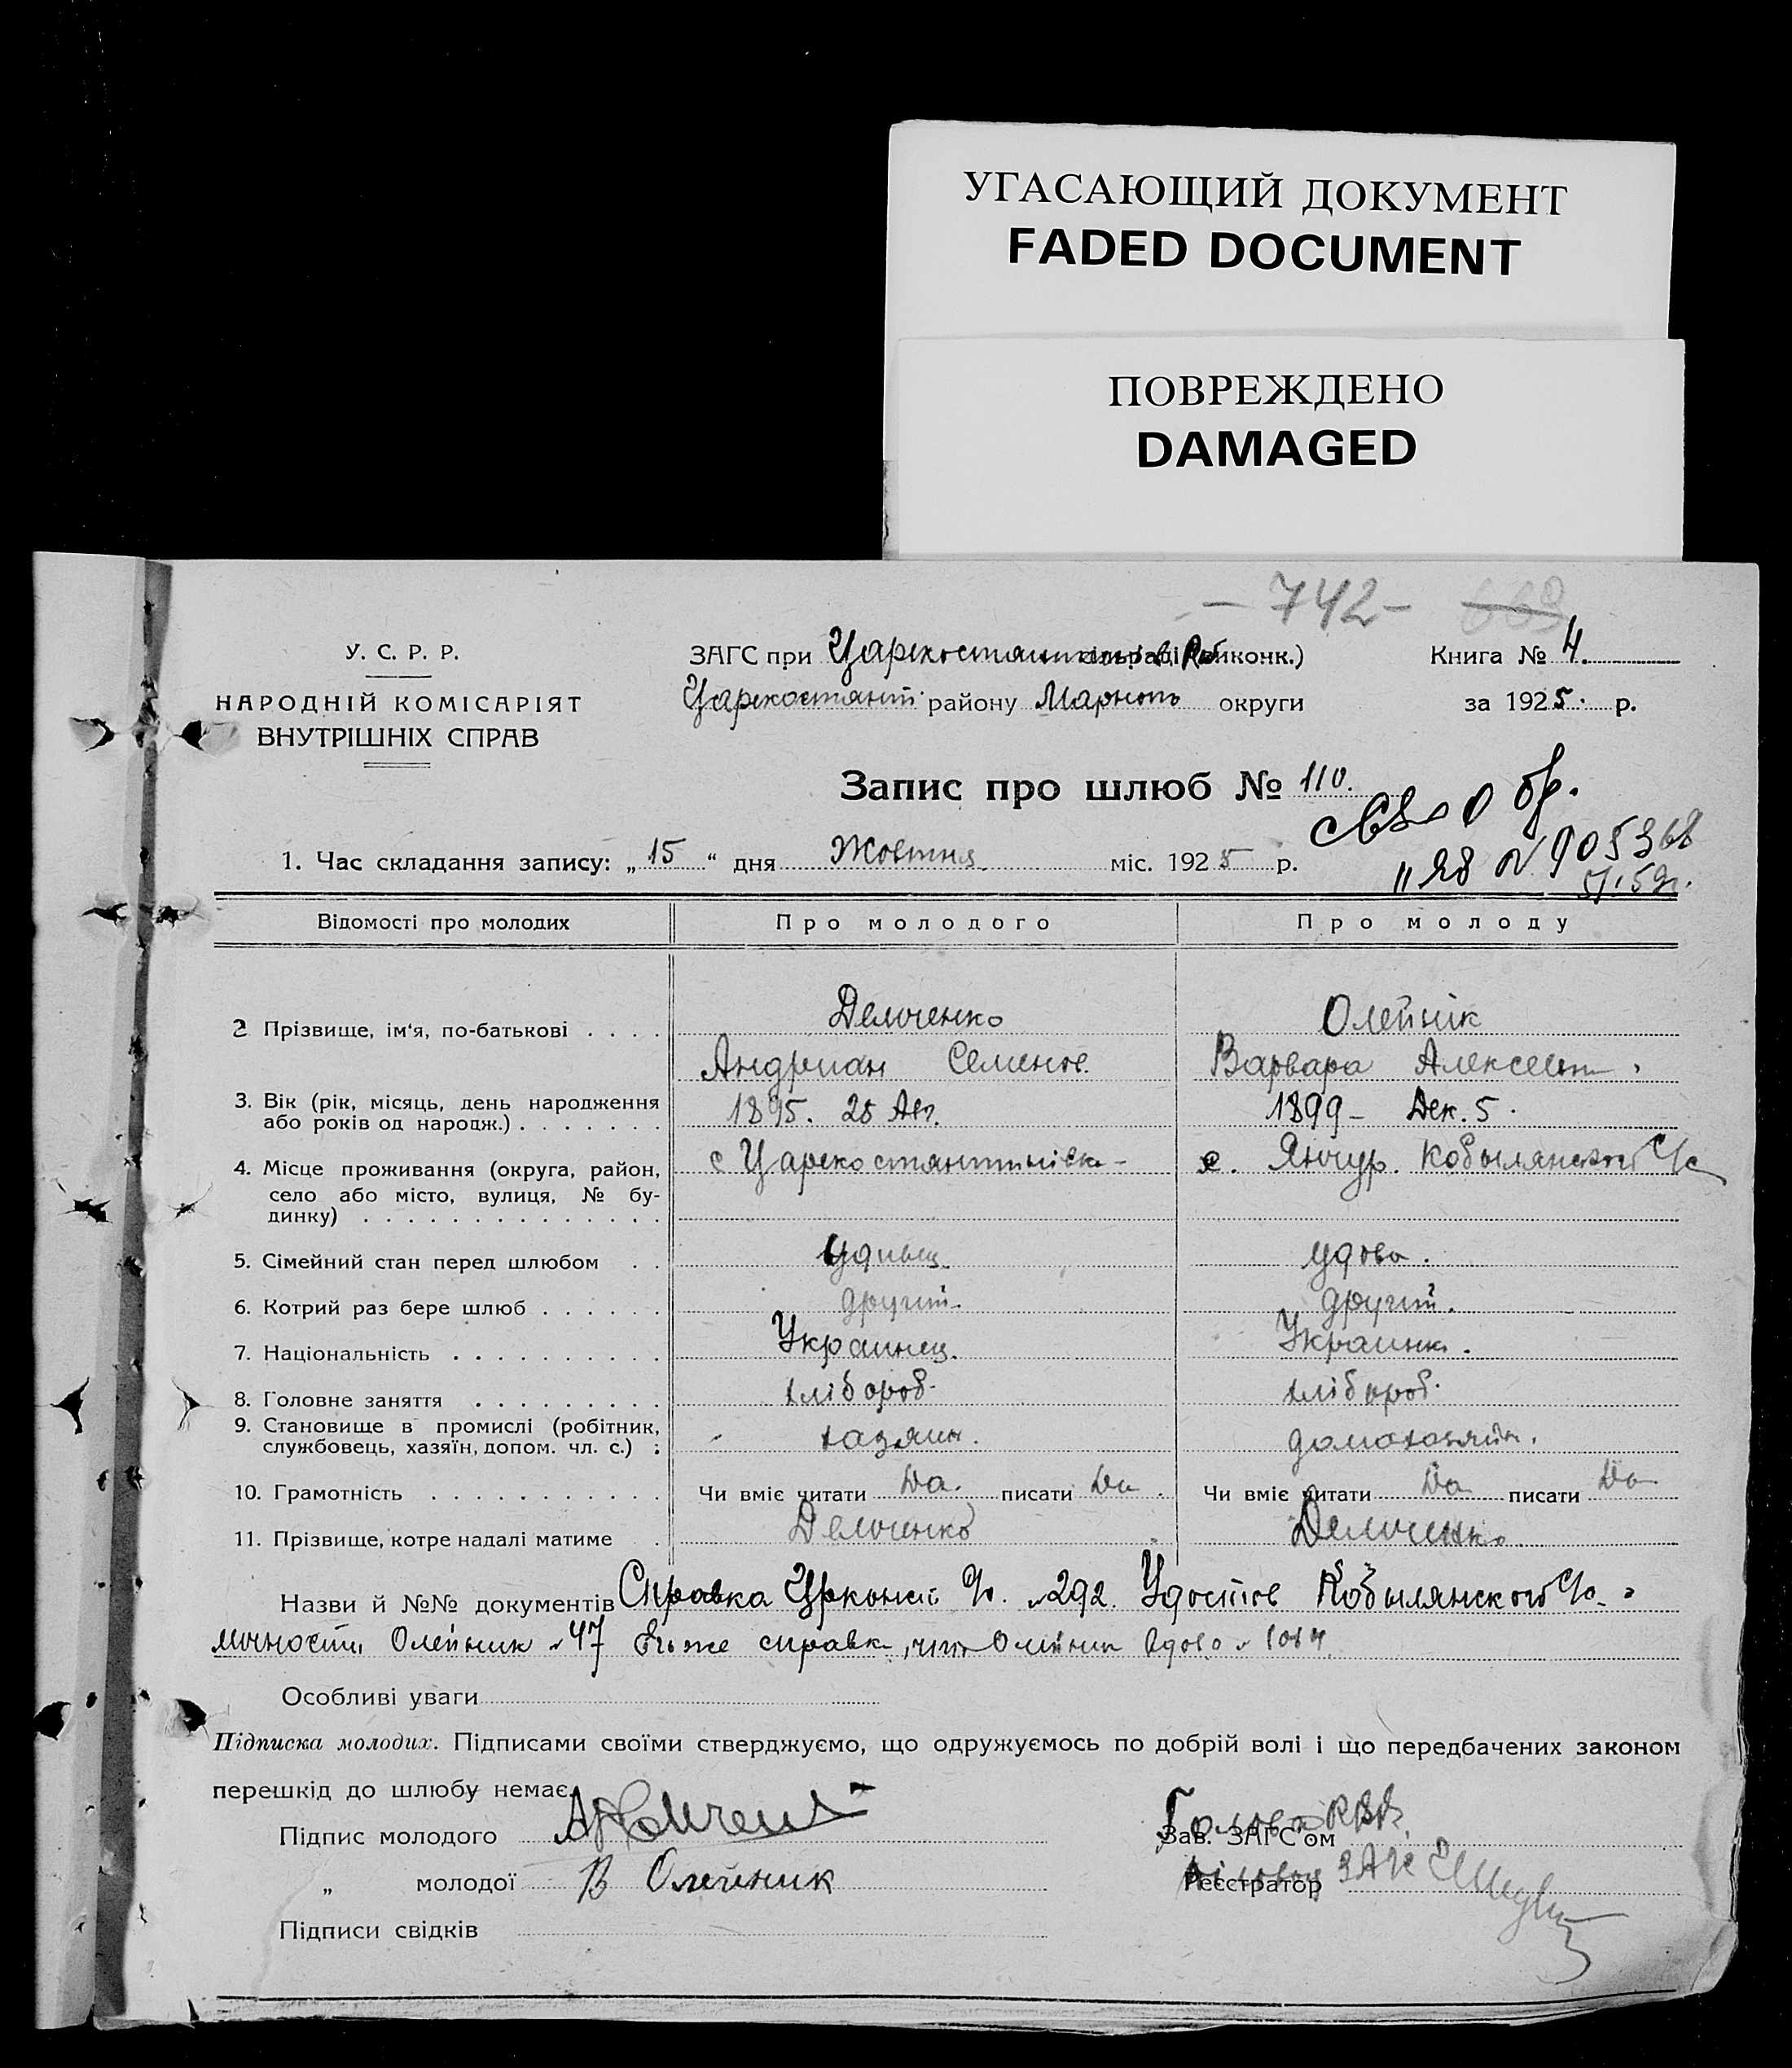 УГАСАЮЩИЙ ДОКУМЕНТ
FADED DOCUMENT
ПОВРЕЖДЕНО
DAMAGED
- 742 - 669
У. С. Р. Р.
НАРОДНІЙ КОМІСАРІЯТ
ВНУТРІШНІХ СПРАВ
ЗАГС при Царекостянтин
Царекостянт. району Маріюп округи
Книга № 4.
за 1925. р.
Запис про шлюб № 110.
1. Час складання запису: „15“ дня Жовтня міс. 1925 р.
905368
Відомості про молодих
Про молодого
Про молоду
2 Прізвище, ім'я, по-батькові
Демченко
Андриан Семенов.
Олейнік
Варвара Алексеевн
3. Вік (рік, місяць, день народження
або років од народж.)
1895. 25 Авг.
1899 - Дек. 5.
4. Місце проживання (округа, район,
село або місто, вулиця, № бу-
динку)
с Царекостянтинівка -
с. Янчур. Кобылянской С/с
5. Сімейний стан перед шлюбом
Удивец.
удова.
6. Котрий раз бере шлюб
другий.
другий.
7. Національність
Украинец.
Украинка.
8. Головне заняття
хлібороб.
хлібороб.
9. Становище в промислі (робітник,
службовець, хазяїн, допом. чл. с.)
хазяин.
домохазяйн.
10. Грамотність
Чи вміє читати Да. писати Да.
Чи вміє читати Да писати Да
11. Прізвище, котре надалі матиме
Демченко
Демченко
Назви й №№ документів Справка №292. Удостов Кобылянского С/с
личности Олейник №47 справк, что Олейник Вдова №
Особливі уваги
Підписка молодих. Підписами своїми стверджуємо, що одружуємось по добрій волі і що передбачених законом
перешкід до шлюбу немає.
Підпис молодого
Голова РВК
Зав. ЗАГС'ом
„ молодої В Олейник
Реєстратор
Підписи свідків